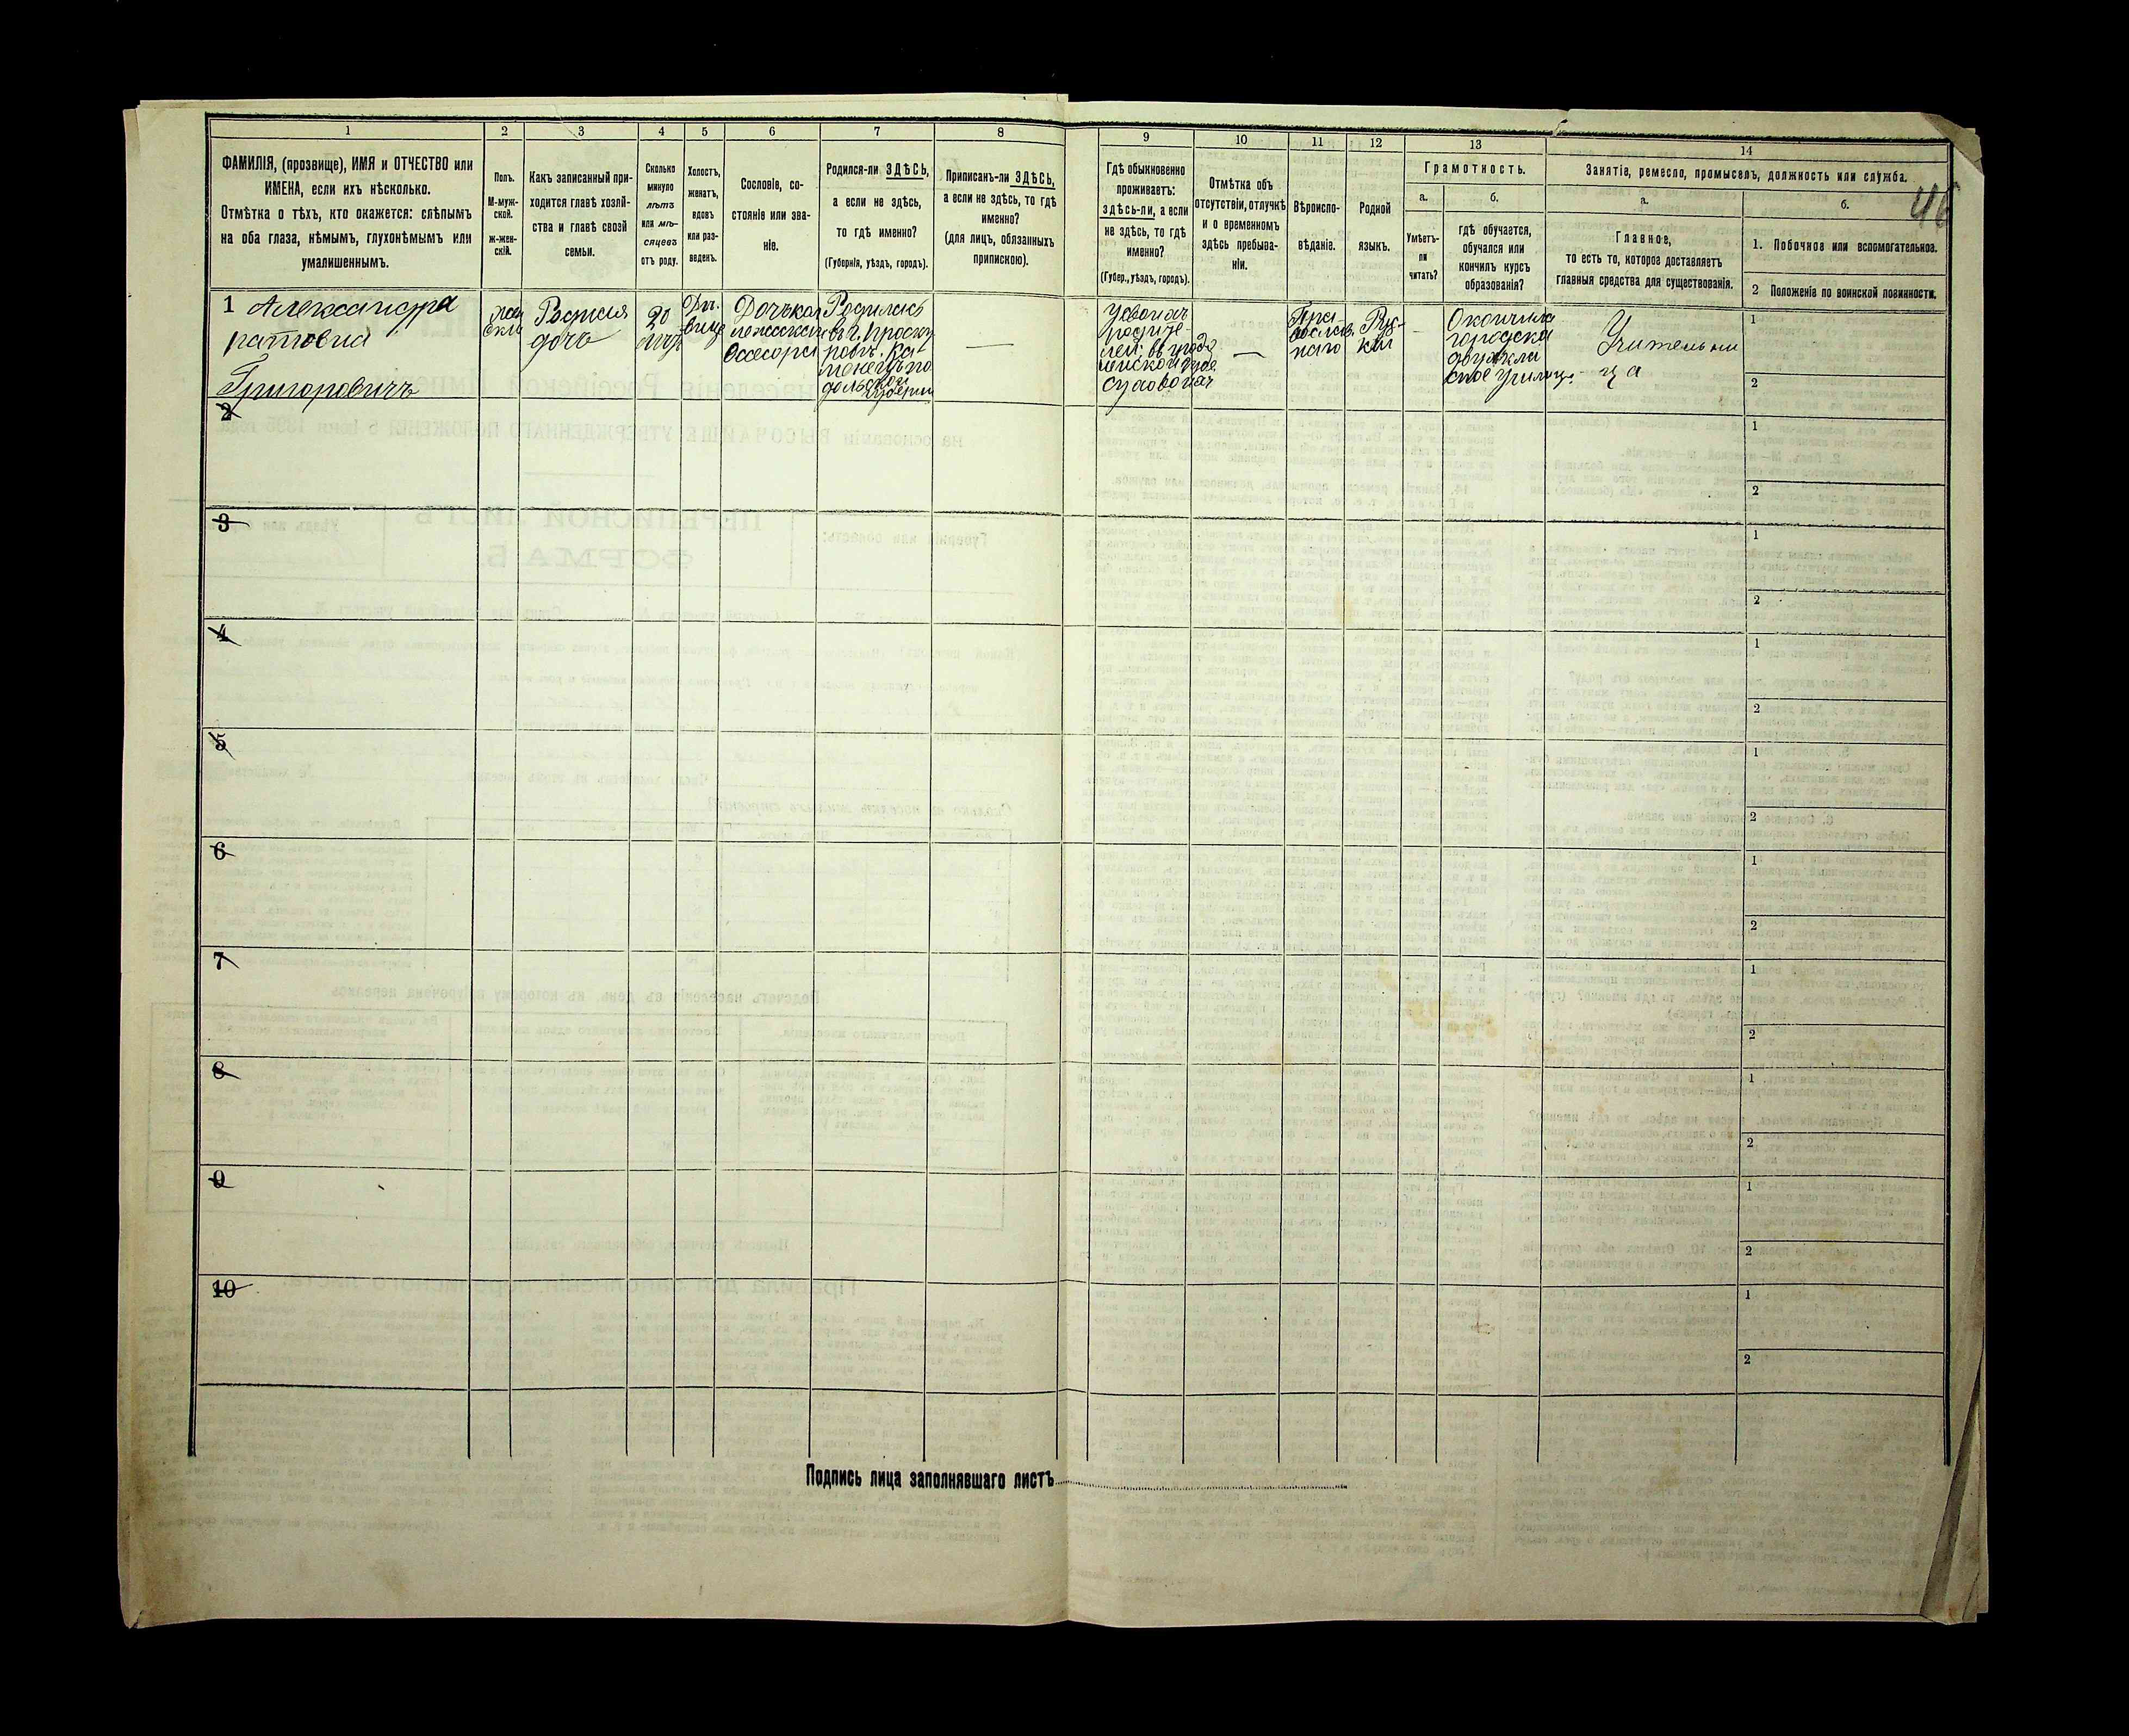 1
2
3
4
5
6
7
8
9
10
11
12
13
14
46
ФАМИЛІЯ, (прозвище), ИМЯ и ОТЧЕСТВО или
ИМЕНА, если ихъ нѣсколько.
Отмѣтка о тѣхъ, кто окажется: слѣпымъ
на оба глаза, нѣмымъ, глухонѣмымъ или
умалишеннымъ.
Полъ.
М-муж-
ской.
Ж-жен-
скій.
Какъ записанный при-
ходится главѣ хозяй-
ства и главѣ своей
семьи.
Сколько
минуло
лѣтъ
или мѣ-
сяцевъ
отъ роду.
Холостъ,
женатъ,
вдовъ
или раз-
веденъ.
Сословіе, со-
стояніе или зва-
ніе.
Родился-ли ЗДѢСЬ,
а если не здѣсь,
то гдѣ именно?
(Губернія, уѣздъ, городъ).
Приписанъ-ли ЗДѢСЬ,
а если не здѣсь, то гдѣ
именно?
(для лицъ, обязанныхъ
припискою).
Гдѣ обыкновенно
проживаетъ:
здѣсь-ли, а если
не здѣсь, то гдѣ
именно?
(Губер., уѣздъ, городъ).
Отмѣтка объ
отсутствіи, отлучкѣ
и о временномъ
здѣсь пребыва-
ніи.
Вѣроиспо-
вѣданіе.
Родной
языкъ.
Грамотность.
а.
Умѣетъ-
ли
читать?
б.
гдѣ обучается,
обучался или
кончилъ курсъ
образованія?
Занятіе, ремесло, промыселъ, должность или служба.
а.
Главное,
то есть то, которое доставляетъ
главныя средства для существованія.
б.
1. Побочное или вспомогательное.
2 Положеніе по воинской повинности.
1 Александра
Григоровичъ
Родная
дочь
20
Дѣ-
вица
Дочь кол
Родилась
въ г. Проску
ровъ. Ка-
менецъ по
дольской
губерніи
—
—
Пра-
вослав.
наго
Рус-
кій
—
Окончила
городское
двухкла
сное училищ.
Учительни
ца
1
2
2
1
2
3
1
2
4
1
2
5
1
2
6
1
2
7
1
2
8
1
2
9
1
2
10
1
2
Подпись лица заполнявшаго листъ